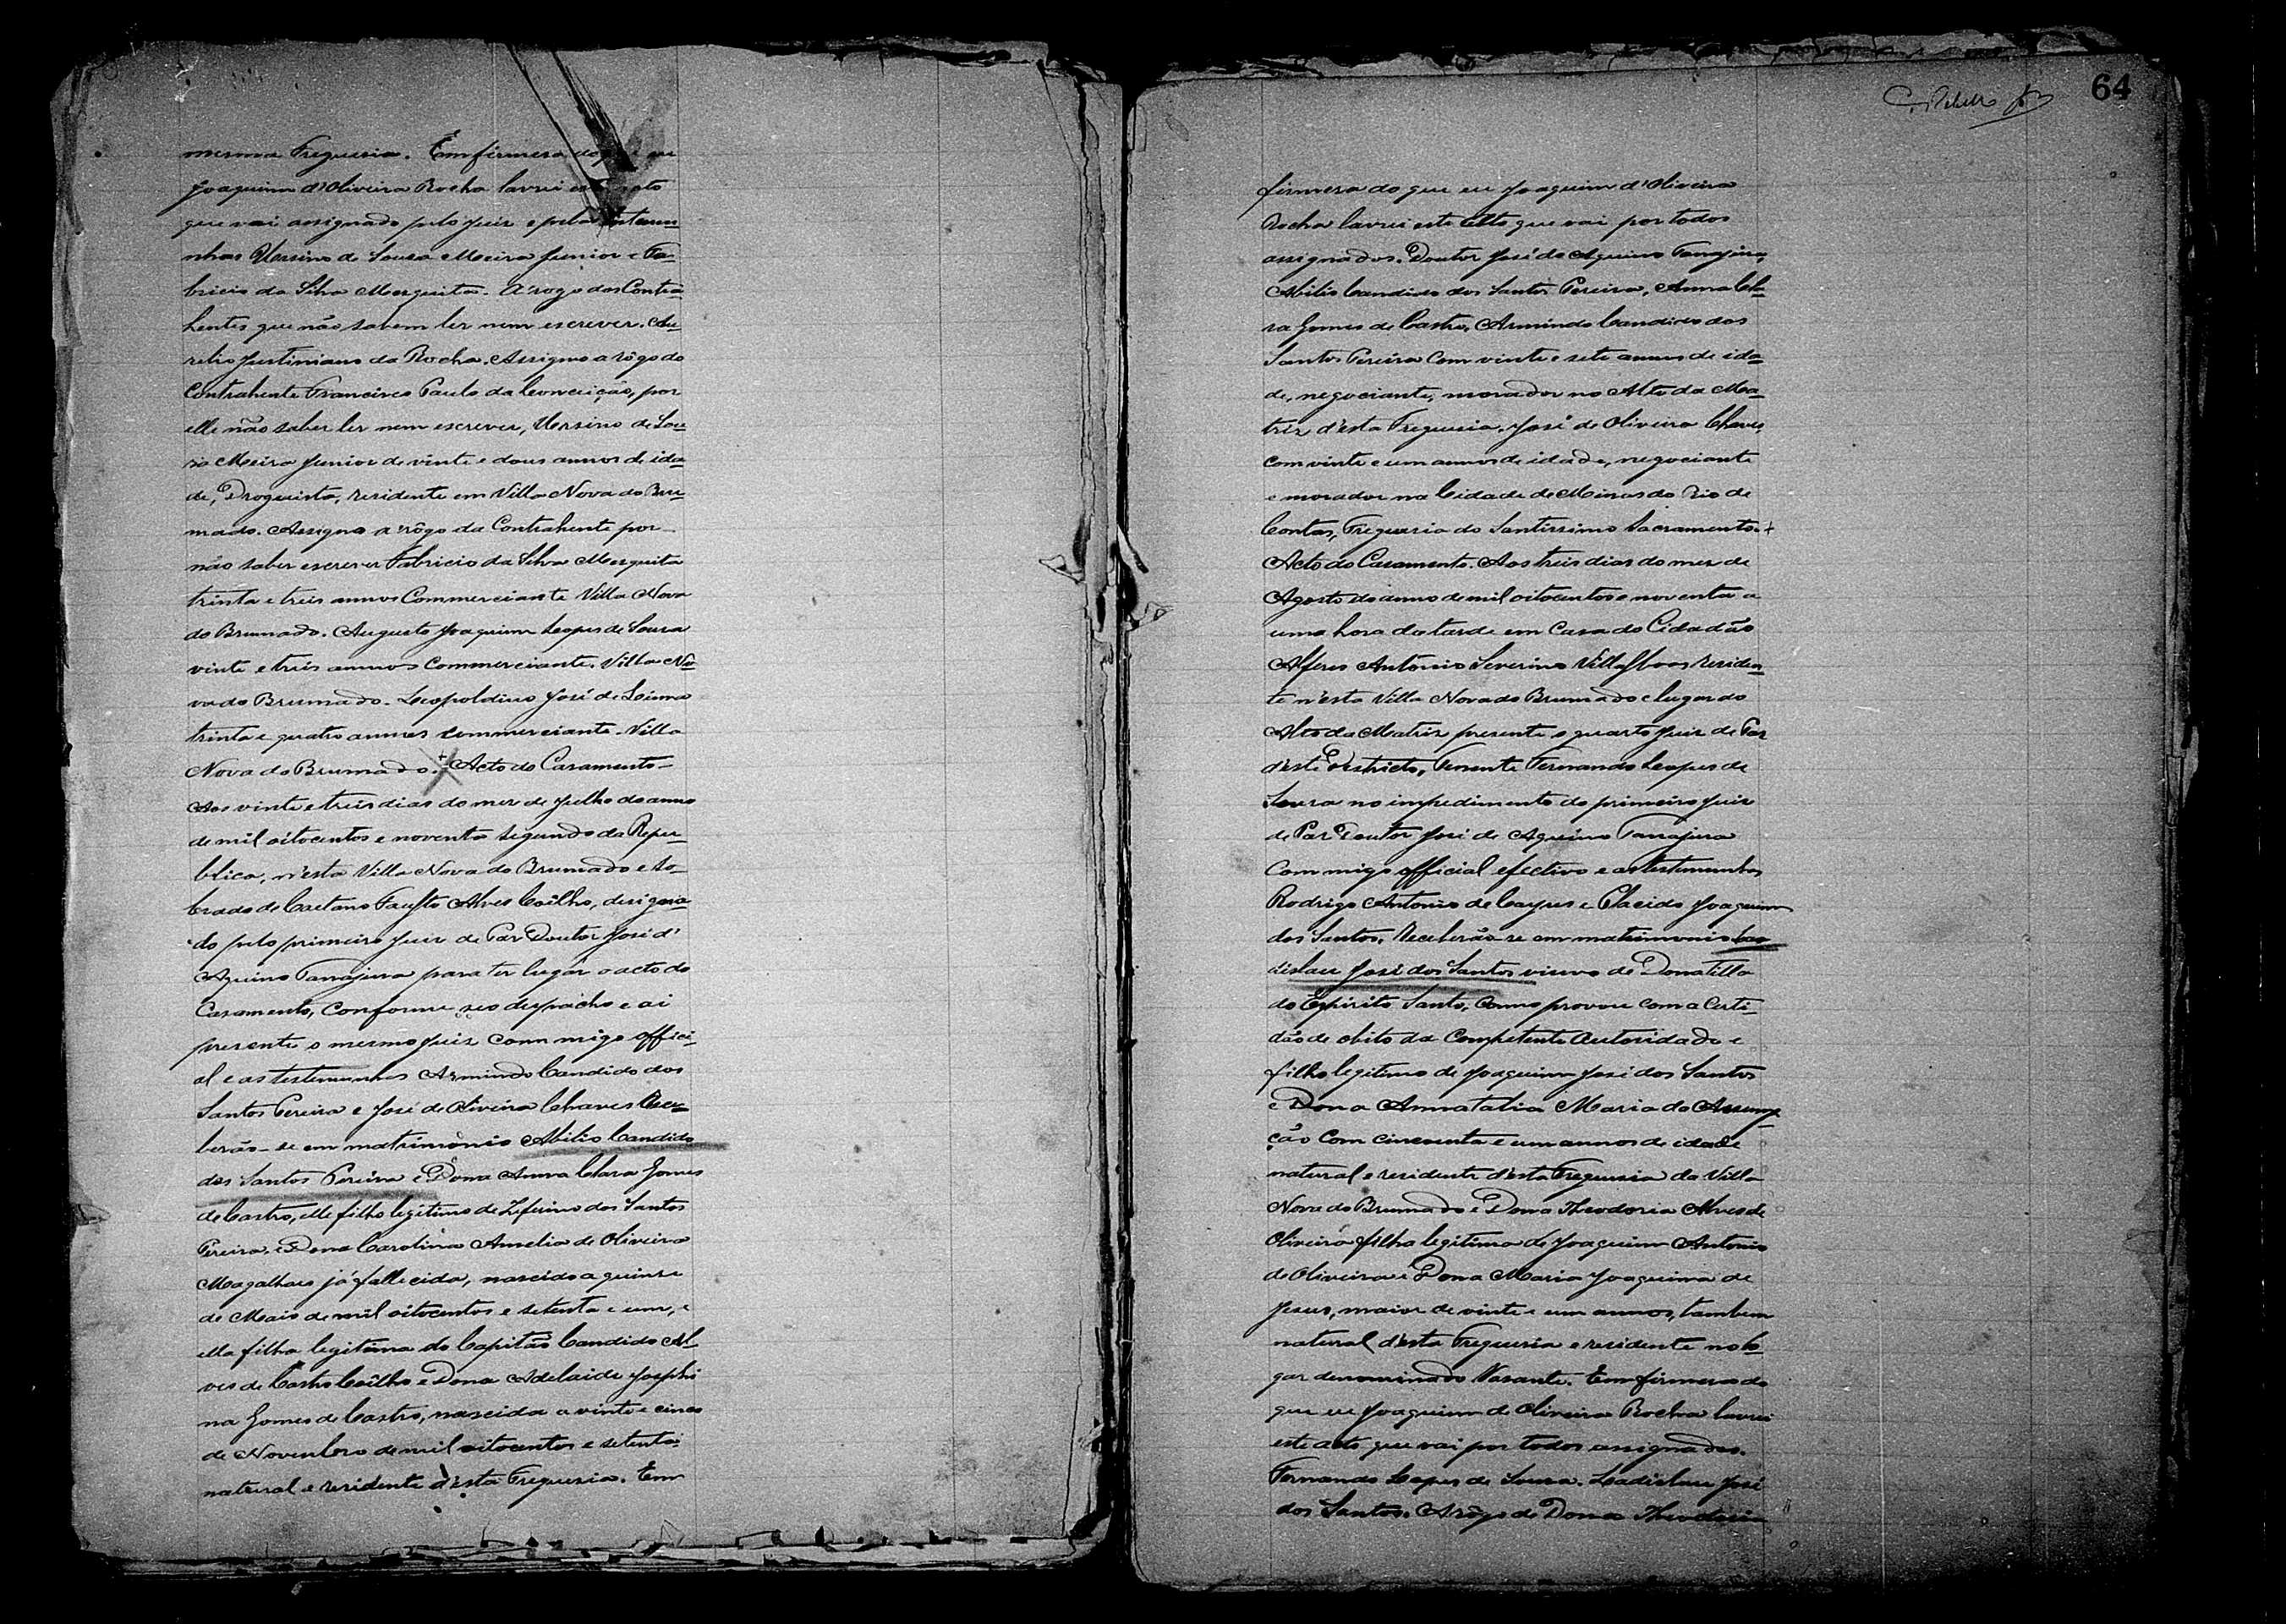 mesma Freguesia. Em firmesa do que eu
Joaquim d'Oliveira Rocha lavrei este acto
que vai assignado pelo Juiz e pelas testemu-
nhas Ursino de Sousa Meira Junior e Fa-
bricio da Silva Mesquita. A rogo dos Contra-
hentes que não sabem ler nem escrever. Au-
relio Justiniano da Rocha. Assigno a rôgo do
Contrahente Francisco Paulo da Conceição, por
elle não saber ler nem escrever, Ursino de Sou-
sa Meira Junior de vinte e dous annos de ida-
de, Droguista, residente em Villa Nova do Bru-
mado. Assigno a rôgo da Contrahente por
não saber escrever Fabricio da Silva Mesquita
trinta e treis annos Commerciante Villa Nova
do Brumado. Augusto Joaquim Lopes de Sousa
vinte e treis annos Commerciante. Villa No-
va do Brumado. Leopoldino José de
trinta e quatro annos commerciante. Villa
Nova do Brumado. + Acto do Casamento-
Aos vinte e treis dias do mez de Julho do anno
de mil oitocentos e noventa segundo da Repu-
blica, n'esta Villa Nova do Brumado e so-
brado de Caetano Fausto Alves Coêlho, designa-
do pelo primeiro Juiz de Paz Doutor José d'
Aquino Tanajura para ter lugar o acto do
Casamento, Conforme seo despacho e ai
presente o mesmo Juiz commigo offici-
al e as testemunhas Armindo Candido dos
Santos Pereira e José de Oliveira Chaves Rece-
berão-se em matrimonio Abilio Candido
dos Santos Pereira e Dona Anna Clara Gomes
de Castro, elle filho legitimo de Zeferino dos Santos
Pereira e Dona Carolina Amelia de Oliveira
Magalhaes já fallecida, nascido a quinse
de Maio de mil oitocentos e setenta e um, e
ella filha legitima do Capitão Candido Al-
ves de Castro Coêlho e Dona Adelaide Josephi
na Gomes de Castro, nascida a vinte e cinco
de Novembro de mil oitocentos e setenta
natural e residente d'esta Freguesia. Em
64
firmesa do que eu Joaquim d'Oliveira
Rocha lavrei este Acto que vai por todos
assignados. Doutor José de Aquino Tanajura,
Abilio Candido dos Santos Pereira, Anna Cla-
ra Gomes de Castro, Armindo Candido dos
Santos Pereira Com vinte e sete annos de ida-
de, negociante, morador no Alto da Ma-
triz d'esta Freguesia. José de Oliveira Chaves,
com vinte e um annos de idade, negociante
e morador na Cidade de Minas do Rio de
Contas, Freguesia do Santissimo Sacramento. +
Acto do Casamento. Aos treis dias do mez de
Agosto do anno de mil oitocentos e noventa a
uma hora da tarde em Casa do Cidadão
Alferes Antônio Severino Villasboas residen-
te n'esta Villa Nova do Brumado e lugar do
Alto da Matriz presente o quarto Juiz de Paz
d'este Destricto, Tenente Fernando Lopes de
Sousa no impedimento do primeiro Juiz
de Paz Doutor José de Aquino Tanajura
Commigo official efectivo e as testemunhas
Rodrigo Antonio de e Placido Joaquim
dos Santos. Receberão-se em matrimonio La-
dislau José dos Santos viuvo de Dona Tilla
do Espirito Santo, Como provou com a Certi-
dão de obito da Competente Autoridade e
filho legitimo de Joaquim José dos Santos
e Dona Annatalia Maria da Assump-
ção Com cincoenta e um annos de idade
natural e residente d'esta Freguesia da Villa
Nova do Brumado e Dona Theodoria Alves de
Oliveira filha legitima de Joaquim Antonio
de Oliveira e Dona Maria Joaquina de
Jesus, maior de vinte e um annos, tambem
natural d'esta Freguesia e residente no lo-
gar denominado Vasante. Em firmesa do
que eu Joaquim de Oliveira Rocha lavrei
este acto que vai por todos assignados.
Fernando Lopes de Sousa. Ladislau José
dos Santos. A rôgo de Dona Theodoria